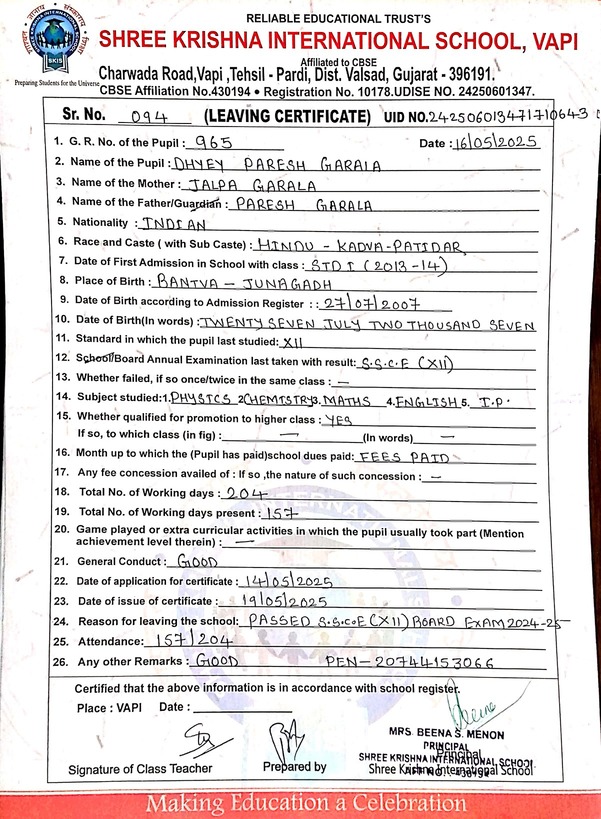 RELIABLE EDUCATIONAL TRUST'S
SHREE KRISHNA INTERNATIONAL SCHOOL, VAPI
Affiliated to CBSE
Charwada Road,Vapi ,Tehsil - Pardi, Dist. Valsad, Gujarat - 396191.
CBSE Affiliation No.430194 • Registration No. 10178.UDISE NO. 24250601347.
SKIS
Preparing Students for the Universe
Sr. No. 094 (LEAVING CERTIFICATE) UID NO.
1. G. R. No. of the Pupil : 965 Date : 16/05/2025
2. Name of the Pupil : DHYEY PARESH GARALA
3. Name of the Mother : JALPA GARALA
4. Name of the Father/Guardian : PARESH GARALA
5. Nationality : INDIAN
6. Race and Caste ( with Sub Caste) : HINDU - KADVA-PATIDAR
7. Date of First Admission in School with class : STD I (2013-14)
8. Place of Birth : BANTVA - JUNAGADH
9. Date of Birth according to Admission Register : : 27/07/2007
10. Date of Birth(In words) : TWENTY SEVEN JULY TWO THOUSAND SEVEN
11. Standard in which the pupil last studied: XII
12. School/Board Annual Examination last taken with result: S.S.C.E (XII)
13. Whether failed, if so once/twice in the same class : —
14. Subject studied:1.PHYSICS 2CHEMISTRY3.MATHS 4.ENGLISH 5. I.P.
15. Whether qualified for promotion to higher class : YES
If so, to which class (in fig) : — (In words) —
16. Month up to which the (Pupil has paid)school dues paid: FEES PAID
17. Any fee concession availed of : If so ,the nature of such concession : —
18. Total No. of Working days : 204
19. Total No. of Working days present : 157
20. Game played or extra curricular activities in which the pupil usually took part (Mention
achievement level therein) : —
21. General Conduct : GOOD
22. Date of application for certificate : 14/05/2025
23. Date of issue of certificate : 19/05/2025
24. Reason for leaving the school: PASSED S.S.C.E(XII) BOARD EXAM 2024-25
25. Attendance: 157/204
26. Any other Remarks : GOOD PEN-20744153066
Certified that the above information is in accordance with school register.
Place : VAPI Date :
Beena
MRS. BEENA S. MENON
PRINCIPAL
SHREE KRISHNA INTERNATIONAL SCHOOL
Principal
Signature of Class Teacher Prepared by Shree Krishna International School
Making Education a Celebration